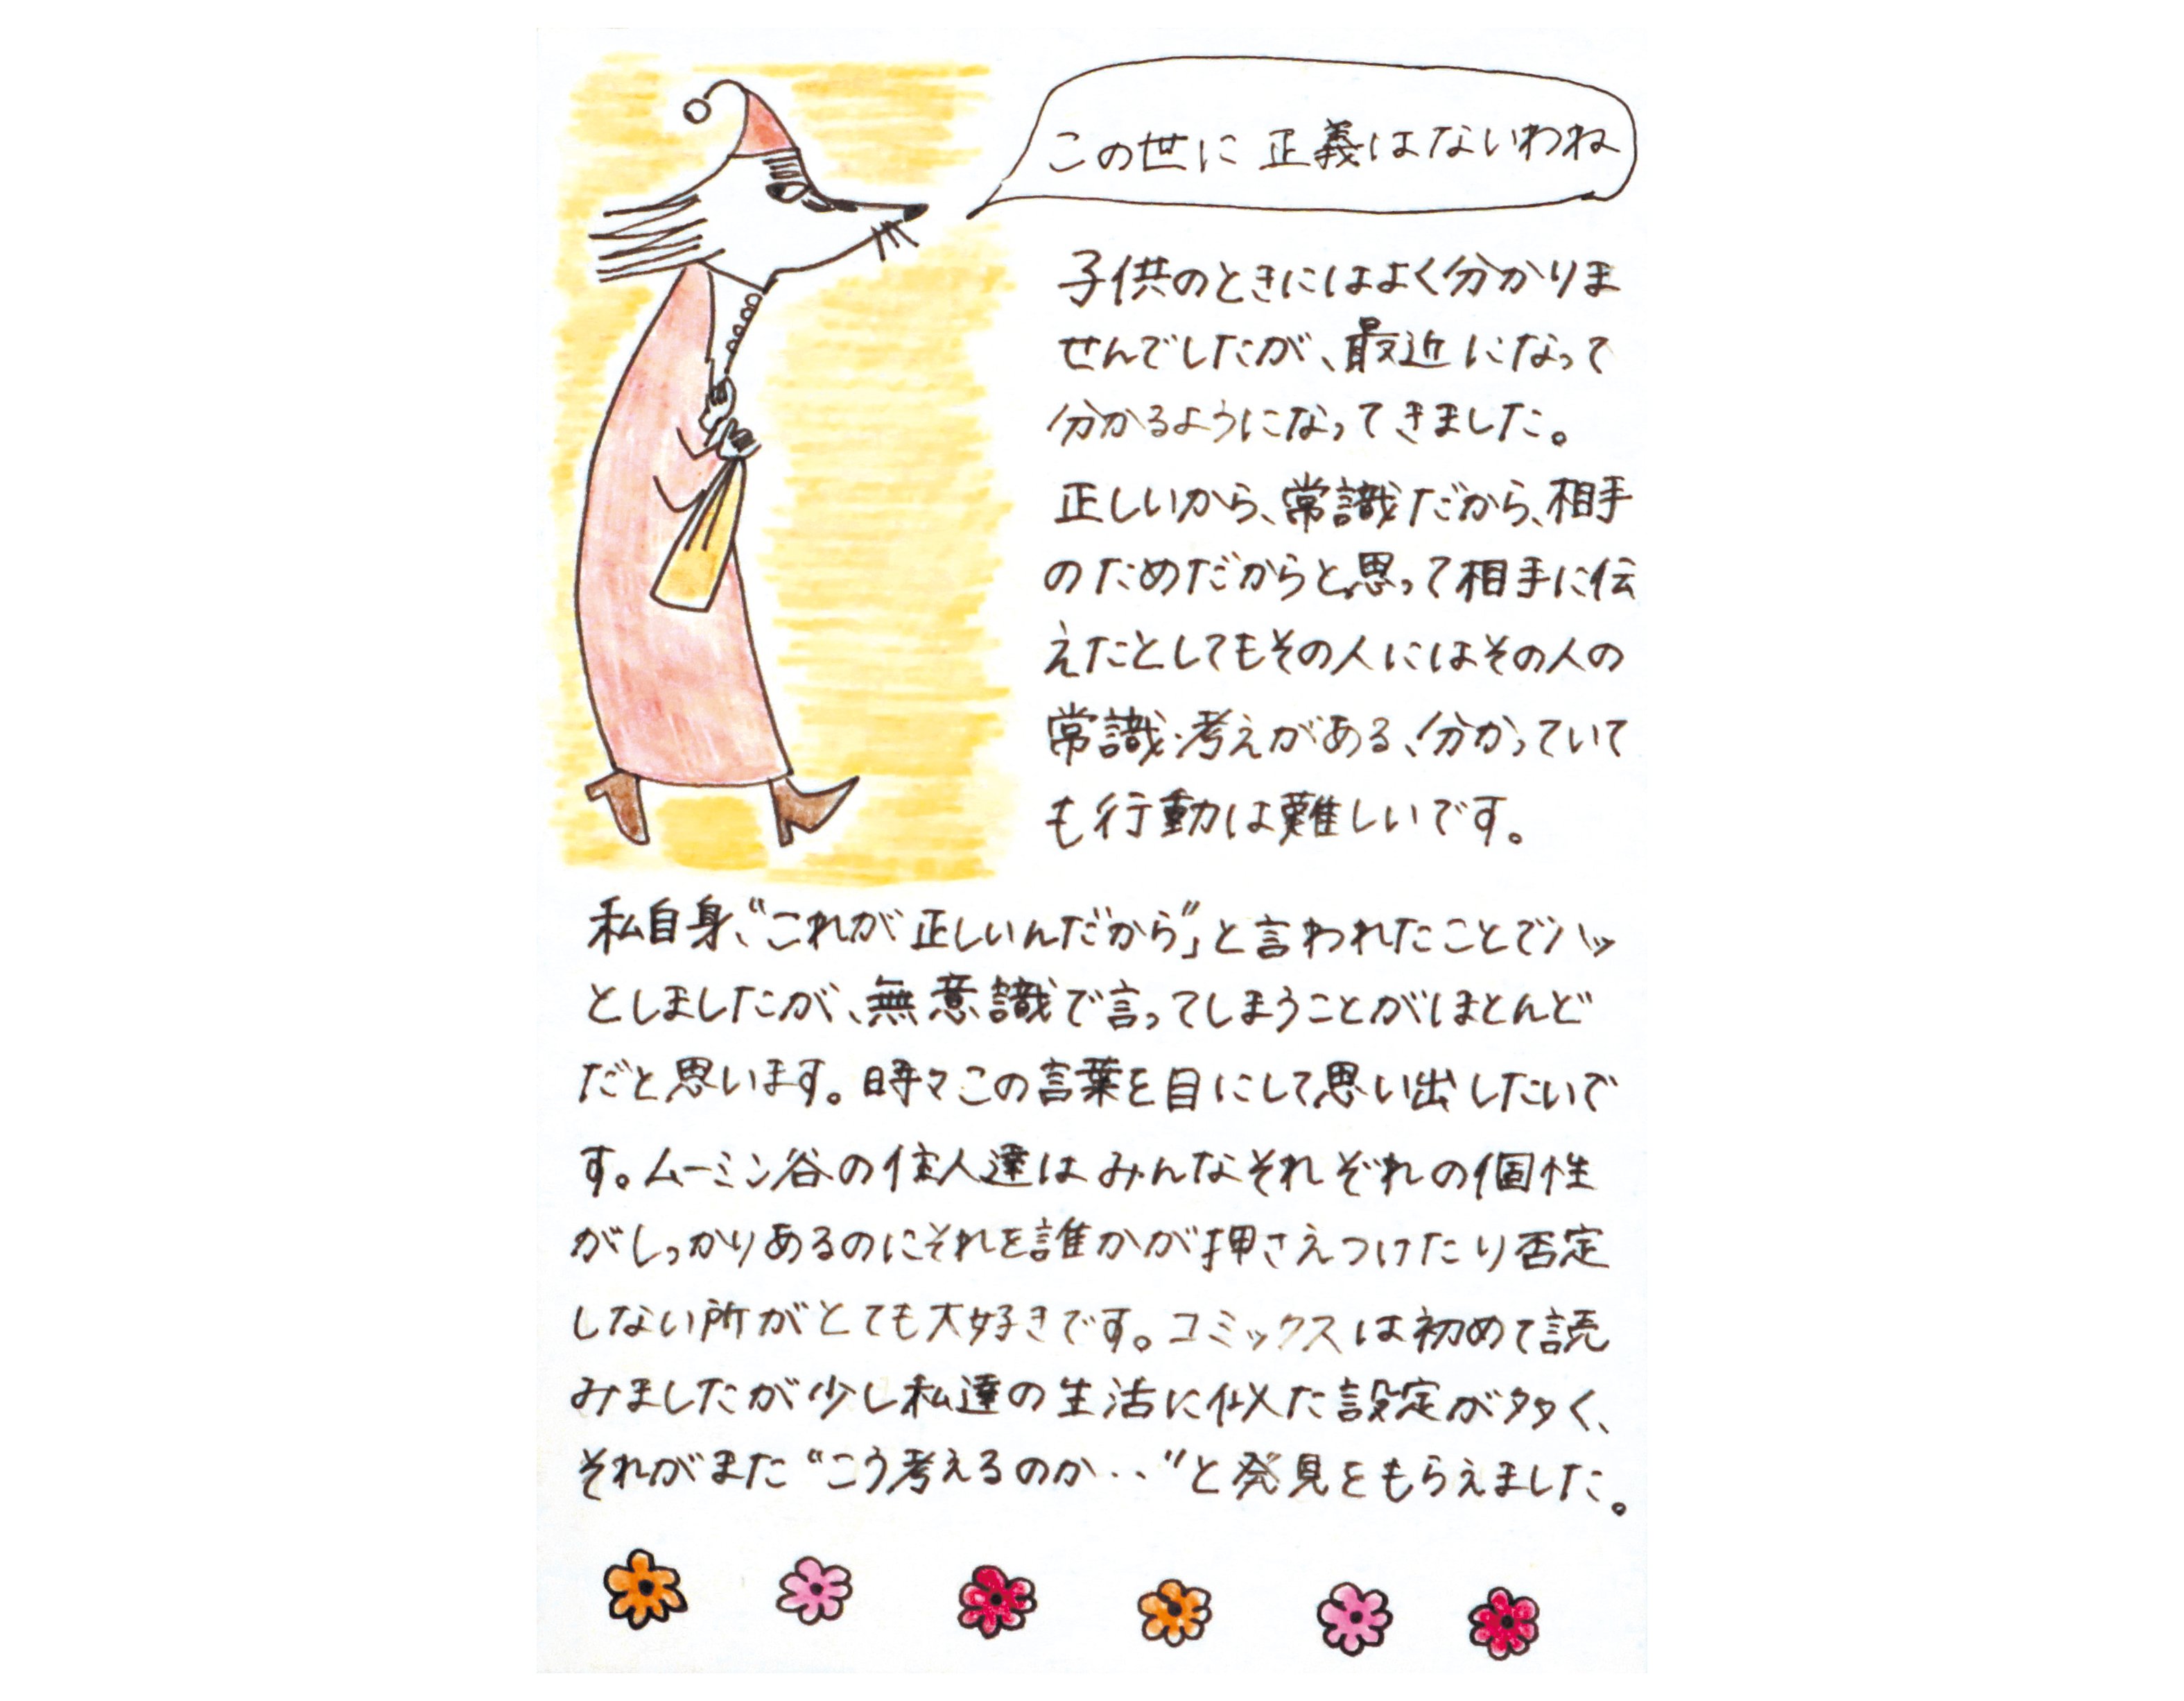 この世に 正義はないわね
子供のときにはよく分かりま
せんでしたが、最近になって
分かるようになってきました。
正しいから、常識だから、相手
のためだからと思って相手に伝
えたとしてもその人にはその人の
常識・考えがある、分かっていて
も行動は難しいです。
私自身、“これが正しいんだから”」と言われたことでハッ
としましたが、無意識で言ってしまうことがほとんど
だと思います。時々この言葉を目にして思い出したいで
す。ムーミン谷の住人達はみんなそれぞれの個性
がしっかりあるのにそれを誰かが押さえつけたり否定
しない所がとても大好きです。コミックスは初めて読
みましたが少し私達の生活に似た設定が多く、
それがまた“こう考えるのか・・”と発見をもらえました。